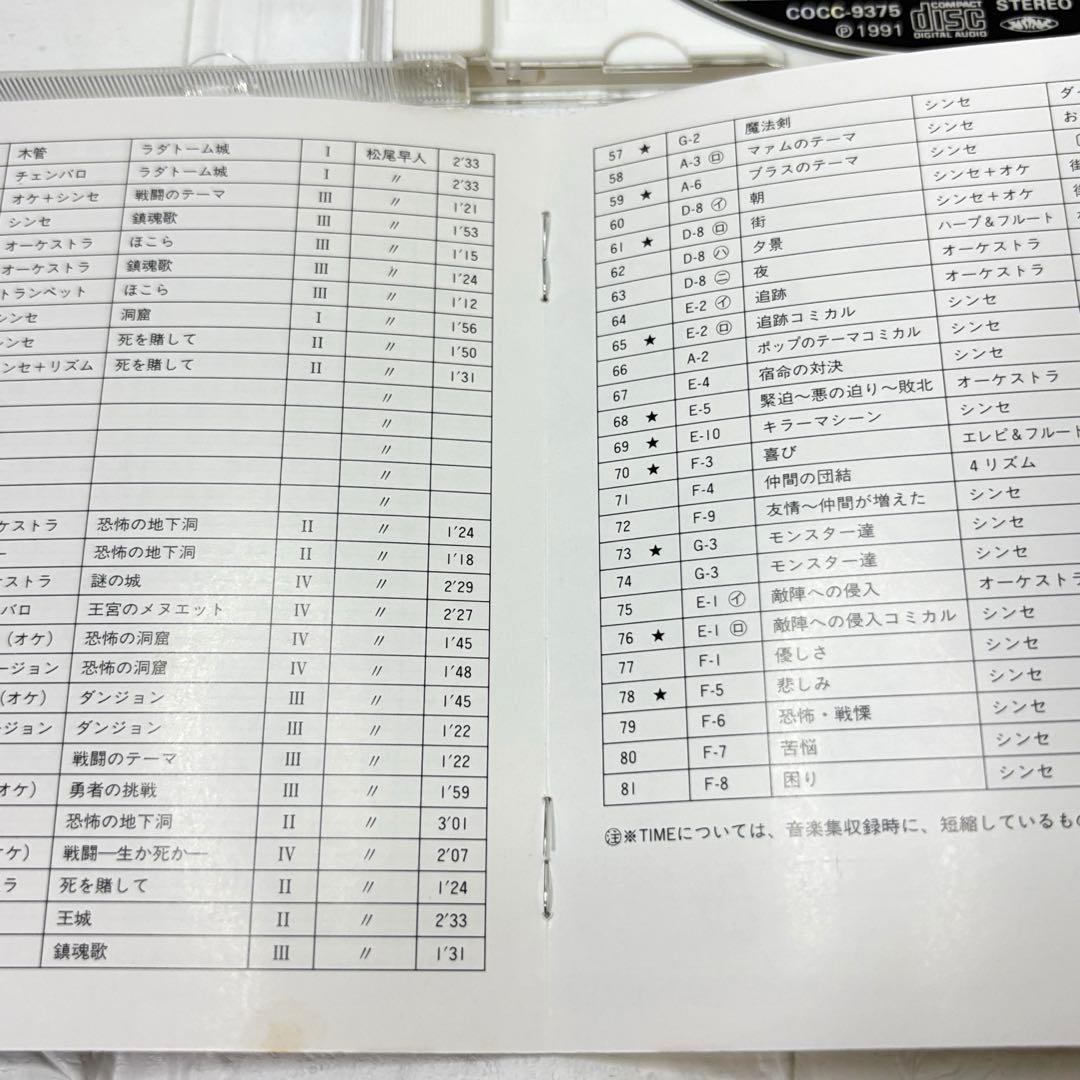 COCC-9375
Ⓟ1991
COMPACT
disc
DIGITAL AUDIO
STEREO
木管 ラダトーム城 I 松尾早人 2'33
チェンバロ ラダトーム城 I 〃 2'33
オケ+シンセ 戦闘のテーマ III 〃 1'21
シンセ 鎮魂歌 III 〃 1'53
オーケストラ ほこら III 〃 1'15
オーケストラ 鎮魂歌 III 〃 1'24
トランペット ほこら III 〃 1'12
シンセ 洞窟 I 〃 1'56
ンセ 死を賭して II 〃 1'50
ンセ+リズム 死を賭して II 〃 1'31
〃
〃
〃
〃
〃
ケストラ 恐怖の地下洞 II 〃 1'24
ー 恐怖の地下洞 II 〃 1'18
ケストラ 謎の城 IV 〃 2'29
バロ 王宮のメヌエット IV 〃 2'27
(オケ) 恐怖の洞窟 IV 〃 1'45
ージョン 恐怖の洞窟 IV 〃 1'48
(オケ) ダンジョン III 〃 1'45
ジョン ダンジョン III 〃 1'22
戦闘のテーマ III 〃 1'22
オケ) 勇者の挑戦 III 〃 1'59
恐怖の地下洞 II 〃 3'01
ケ) 戦闘―生か死か― IV 〃 2'07
ラ 死を賭して II 〃 1'24
王城 II 〃 2'33
鎮魂歌 III 〃 1'31
57 ★ G-2 魔法剣 シンセ ダー
58 A-3 ㋺ マァムのテーマ シンセ お
59 ★ A-6 ブラスのテーマ シンセ
60 D-8 ㋑ 朝 シンセ+オケ 街
61 ★ D-8 ㋺ 街 シンセ+オケ 街
62 D-8 ㋩ 夕景 ハープ&フルート
63 D-8 ㋥ 夜 オーケストラ
64 E-2 ㋑ 追跡 オーケストラ
65 ★ E-2 ㋺ 追跡コミカル シンセ
66 A-2 ポップのテーマコミカル シンセ
67 E-4 宿命の対決 シンセ
68 ★ E-5 緊迫〜悪の迫り〜敗北 オーケストラ
69 ★ E-10 キラーマシーン シンセ
70 ★ F-3 喜び エレピ&フルート
71 F-4 仲間の団結 4リズム
72 F-9 友情〜仲間が増えた シンセ
73 ★ G-3 モンスター達 シンセ
74 G-3 モンスター達 シンセ
75 E-1 ㋑ 敵陣への侵入 オーケストラ
76 ★ E-1 ㋺ 敵陣への侵入コミカル シンセ
77 F-1 優しさ シンセ
78 ★ F-5 悲しみ シンセ
79 F-6 恐怖・戦慄 シンセ
80 F-7 苦悩 シンセ
81 F-8 困り シンセ
㊟※TIMEについては、音楽集収録時に、短縮しているもの